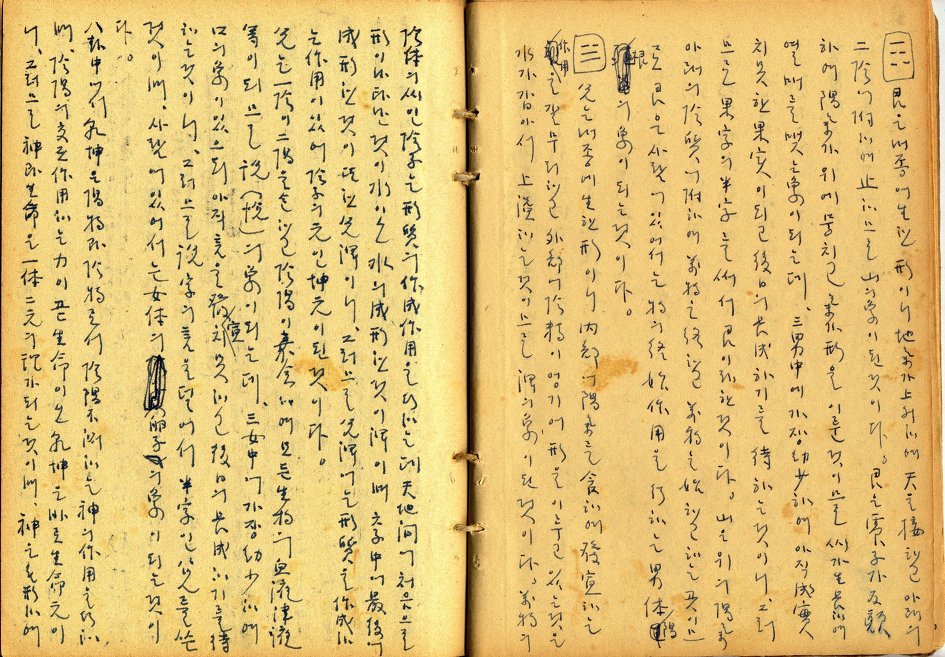 艮은 내종에 生한 形이니 地氣가 上升하여 天을 接하고 아래의
二陰에 附하여 止하므로 山의 象이 된 것이다。艮은 字가 反顚
하여 陽氣가 위에 뭉치고 形을 이룬 것이므로 씨가 生長하여
열매를 맺는 象이 되는데, 三男中에 가장 幼少하여 아직 成實
치 못한 果實이 되고 後日의 長成하기를 待하는 것이니, 그러
므로 果字의 半字를 써서 艮이라 한 것이다。山은 위의 陽氣가
아래의 陰質에 附하여 萬物을 終하고 萬物을 始하는 곳이므
로 艮은 사람에 있어서는 物의 終始作用을 行하는 男体陽
根의 象이 되는 것이다。
兌는 내종에 生한 形이니 內部에 陽氣를 含하여 發宣하는
作用을 갖추었고 外部에 陰精이 엉기어 形을 이루고 있는 것은
水가 上溢하는 것이므로 澤의 象이 된 것이다。萬物의
陰体의 씨인 陰子는 形質의 作成作用을 行하는데 天地間에 처음으로
形이 나타난 것이 水이오 水의 成形한 것이 澤이며 六子中에 最後에
成形한 것이 또한 兌澤이니, 그러므로 兌澤에는 形質을 作成하
는 作用이 있어 陰子의 元이 坤元이 된 것이다。
兌는 一陰이 二陽을 하고 陰陽이 合하여 모든 生物의 血液津液
等이 되므로 說(悅)의 象이 되는데, 三女中에 가장 幼少하여
口의 象이 있으되 아직 言을 發宣치 못하고 後日의 長成하기를 待
하는 것이니, 그러므로 說字의 言을 덜어서 半字인 兌를 쓴
것이며, 사람에 있어서는 女体의 卵子의 象이 되는 것이
다。
八卦中에서 乾坤은 陽物과 陰物로서 陰陽不測하는 神의 作用을 行하
며, 陰陽의 交互作用하는 力이 곧 生命이오 乾坤은 바로 生命元이
니, 그러므로 神과 生命은 一体二元의 가 되는 것이며, 神은 無形하여